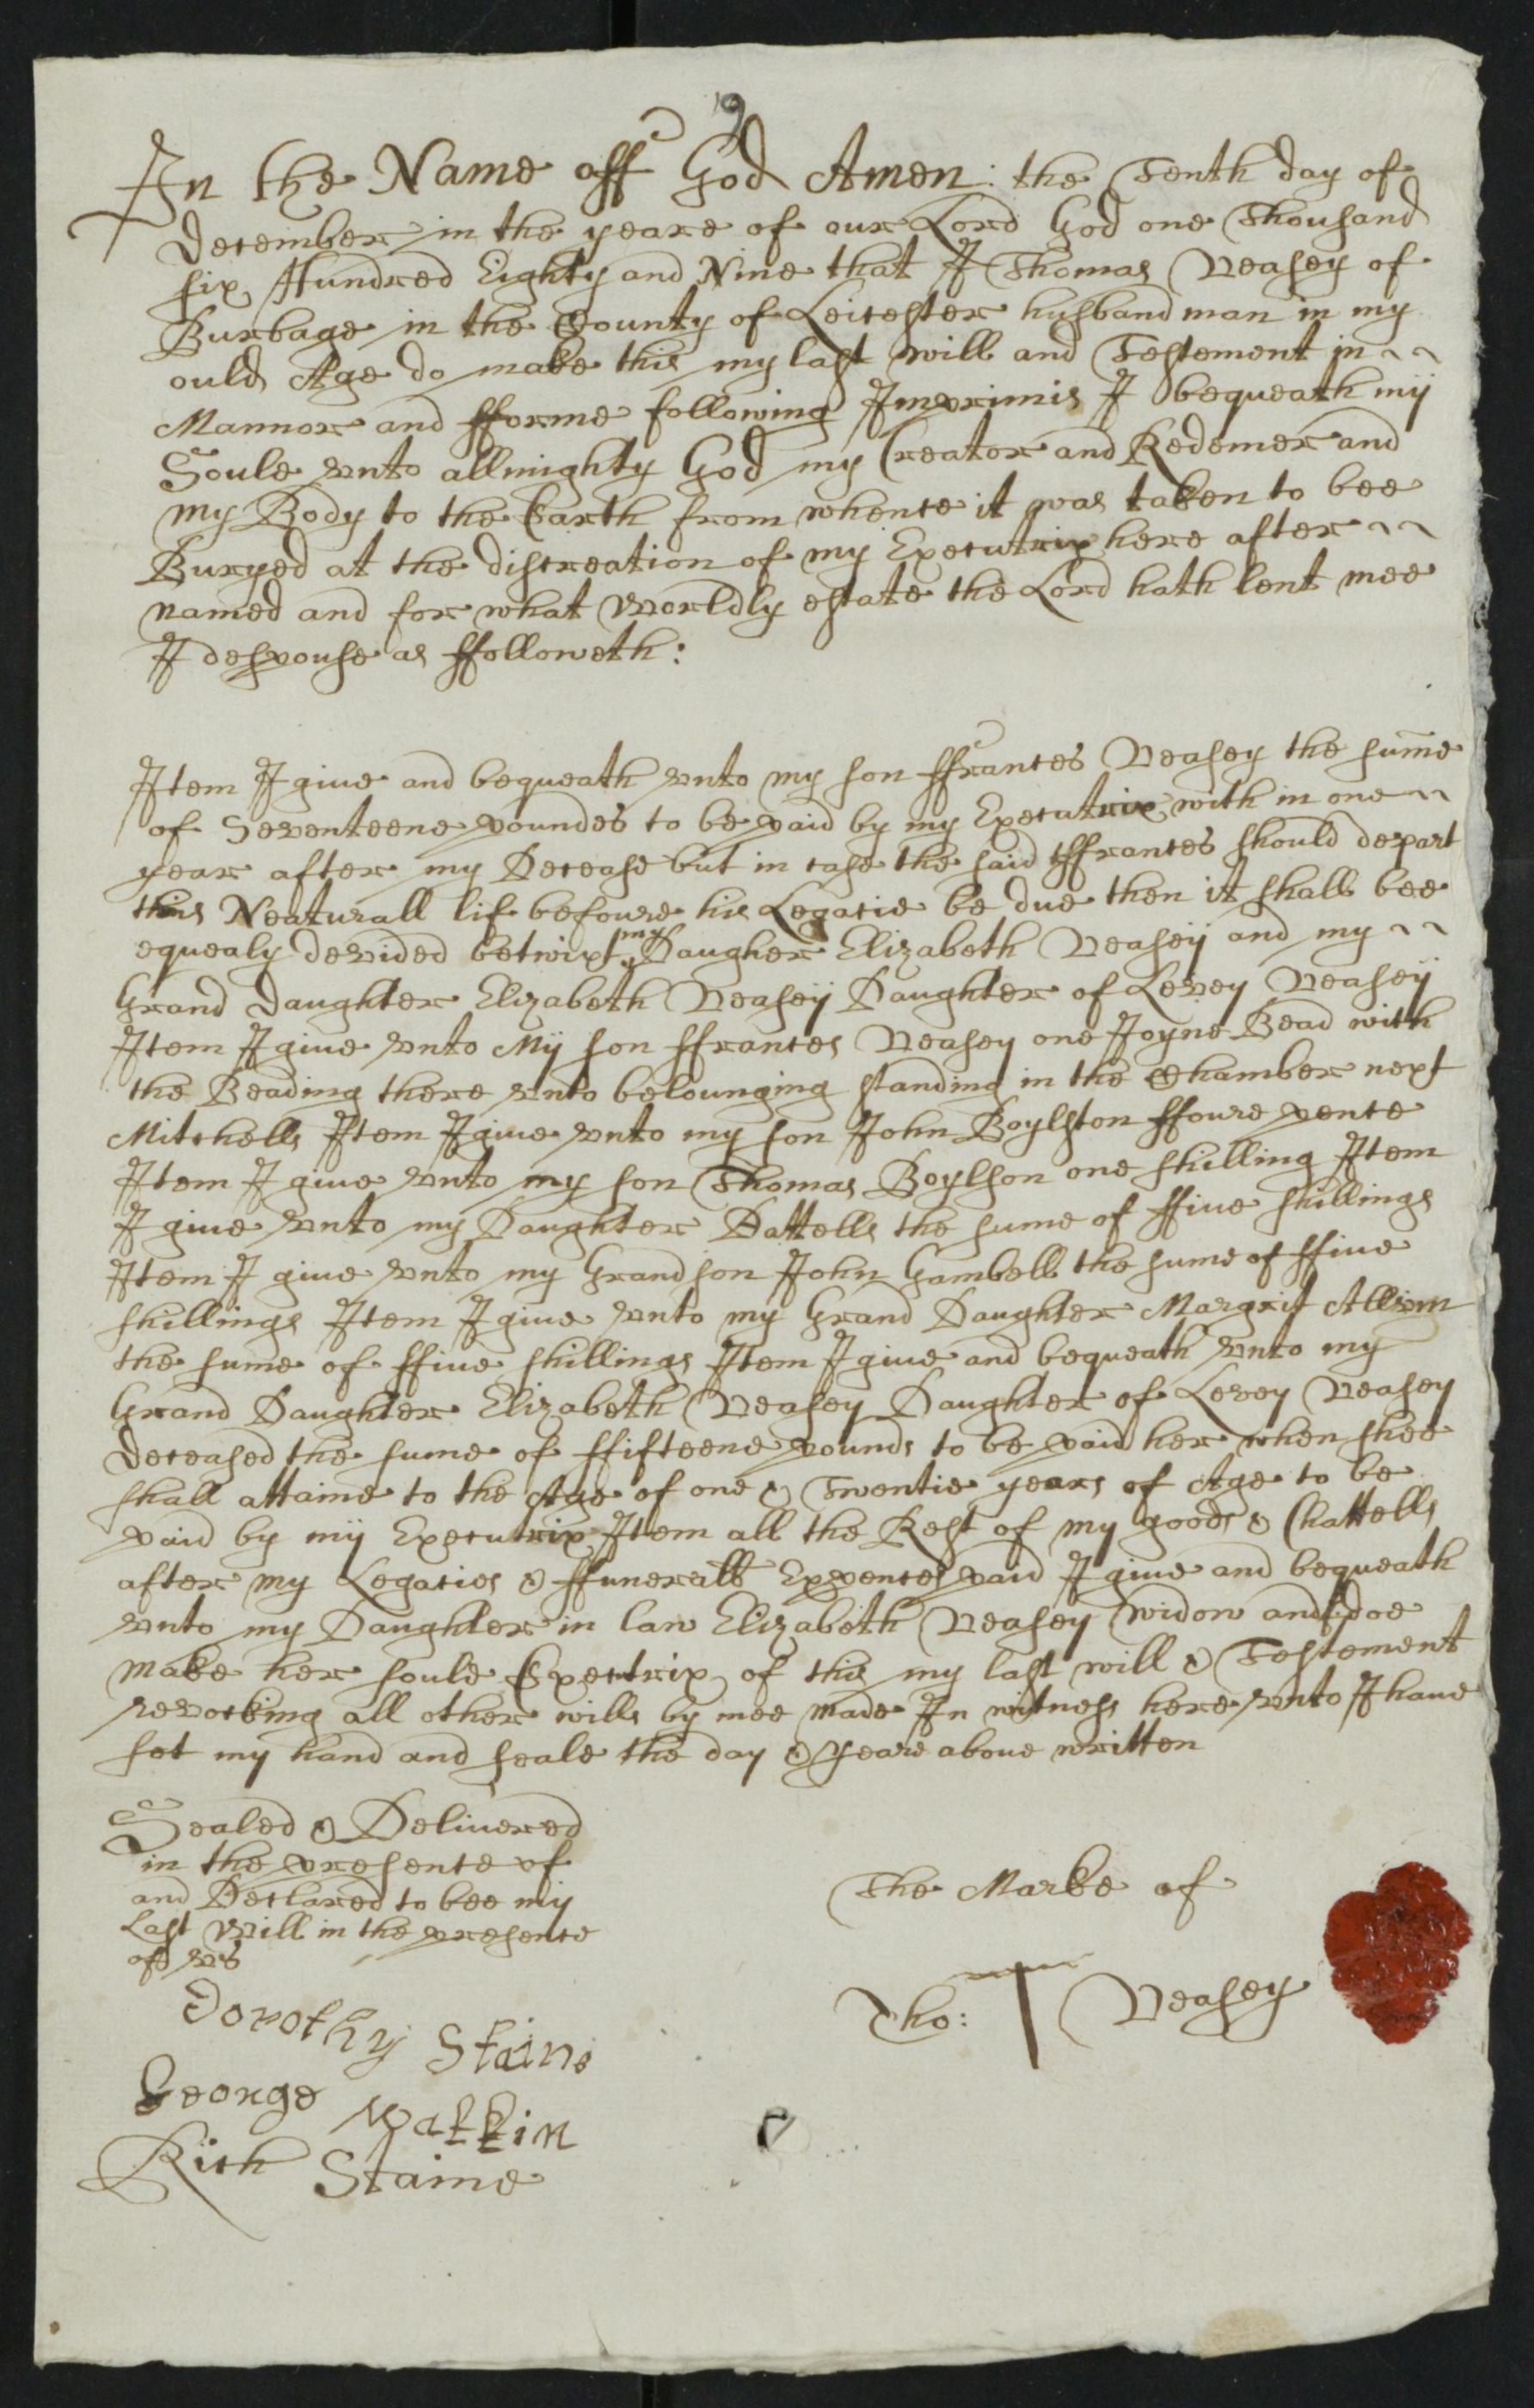 In the Name off God Amen: the Tenth day of
December in the yeare of our Lord God one Thousand
six Hundred Eighty and Nine that I Thomas Veasey of
Burbage in the County of Leicester husband man in my
ould Age do make this my last will and Testement in ~ ~
Mannor and fforme following Imprimis I bequeath my
Soule vnto allmighty God my Creator and Redemer and
my Body to the Earth from whence it was taken to bee
Buryed at the discreation of my Executrix here after ~ ~
named and for what Worldly estate the Lord hath lent mee
I despouse as ffolloweth:
Item I giue and bequeath vnto my son ffrances Veasey the sume
of Seventeene poundes to be paid by my Executrix with in one ~
year after my Decease but in case the said ffrances should depart
this Neaturall lif befoure his Legacie be due then it shall bee
equealy devided betwixt my Daugher Elizabeth Veasey and my ~ ~
Grand Daughter Elizabeth Veasey Daughter of Levey Veasey
Item I giue vnto My son ffrances Veasey one Joyne Bead with
the Beading there vnto belounging standing in the Chamber next
Mitchells Item I giue vnto my son John Boylston ffoure pence
Item I giue vnto my son Thomas Boylson one shilling Item
I giue vnto my Daughter Dattells the sume of ffiue shillings
Item I giue vnto my Grandson John Gambell the sume of ffiue
shillings Item I giue vnto my Grand Daughter Margrit
the sume of ffiue shillings Item I giue and bequeath vnto my
Grand Daughter Elizabeth Veasey Daughter of Levey Veasey
Deceased the sume of ffifteene pounds to be paid her when shee
shall attaine to the Age of one & Twentie years of Age to be
paid by my Executrix Item all the Rest of my goods & Chattells
after my Legacies & ffunerall Expences paid I giue and bequeath
vnto my Daughter in law Elizabeth Veasey Widow and doe
make her soule Exectrix of this my last will & Testement
revocking all other wills by mee made In witness here vnto I haue
set my hand and seale the day & yeare aboue written
Sealed & Delivered
in the presence of
and Declared to bee my
Last Will in the presence
of vs
The Marke of
Tho: T Veasey
Dorothy Staine
George Watkin
Rich Staine